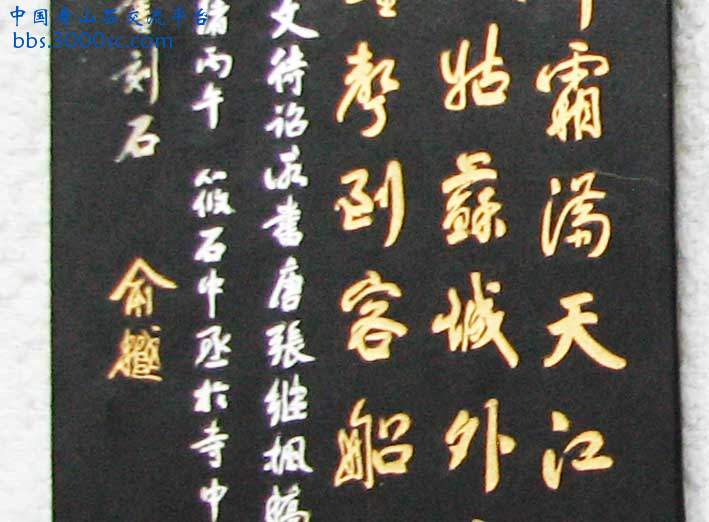 中国寿山石交流平台
bbs.3000sc.com
霜滿天江
姑蘇城外
聲到客船
文待詔所書唐張継楓橋
緒丙午 筱石中丞於寺中
刻石 俞樾